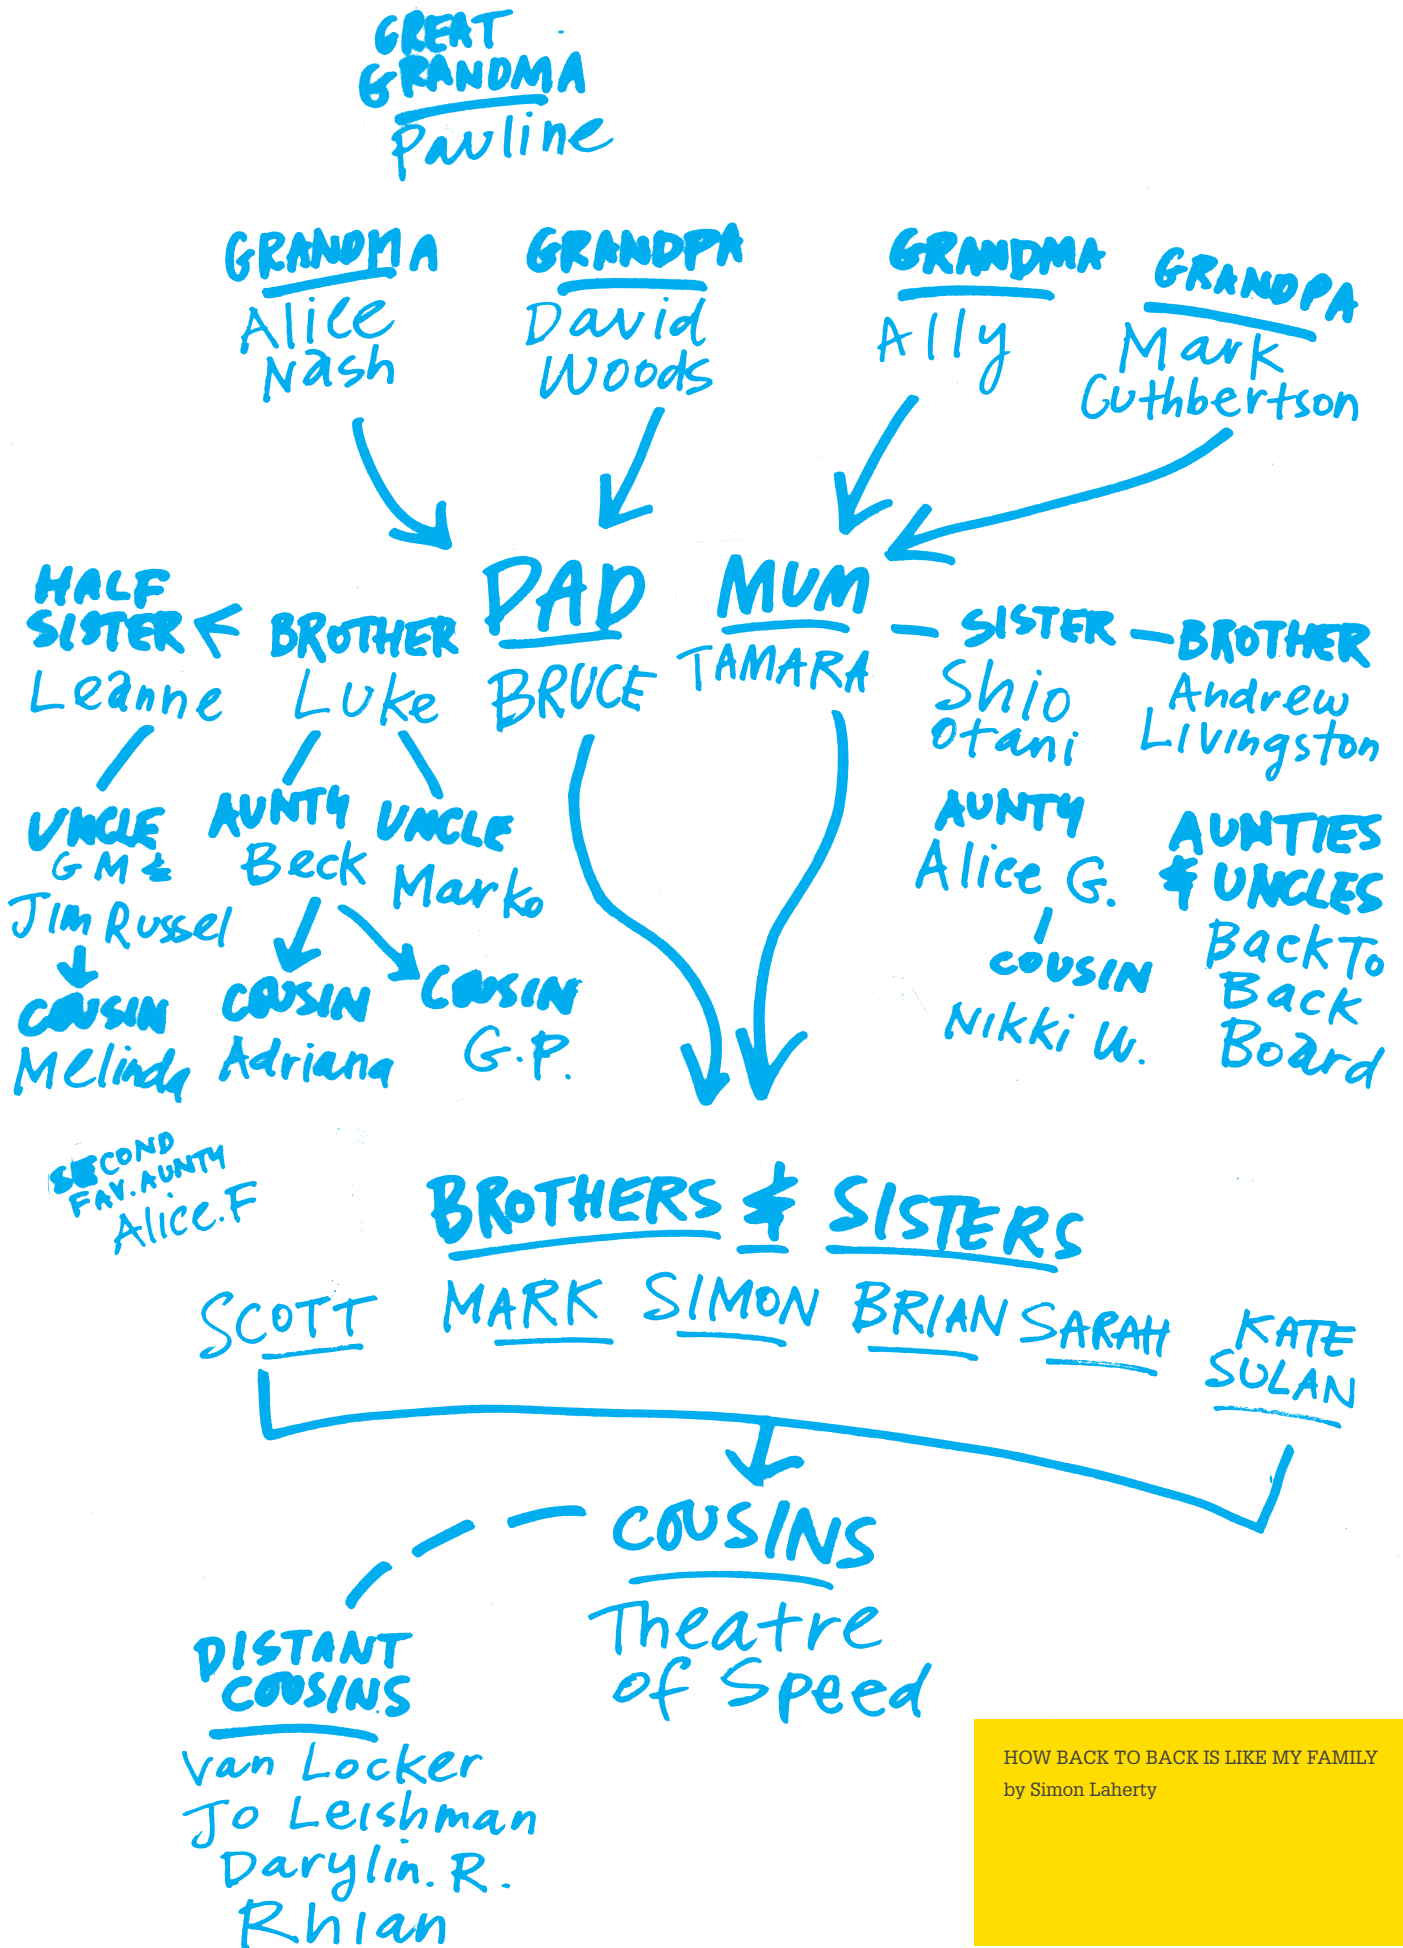 GREAT
GRANDMA
Pauline
GRANDMA
Alice
Nash
GRANDPA
David
Woods
GRANDMA
Ally
GRANDPA
Mark
Cuthbertson
HALF
SISTER
Leanne
BROTHER
Luke
DAD
BRUCE
MUM
TAMARA
SISTER
Shio
Otani
BROTHER
Andrew
Livingston
UNCLE
GM &
Jim Russel
COUSIN
Melinda
AUNTY
Beck
UNCLE
Marko
COUSIN
Adriana
COUSIN
G.P.
AUNTY
Alice G.
COUSIN
Nikki W.
AUNTIES
& UNCLES
Back To
Back
Board
SECOND
FAV. AUNTY
Alice.F
BROTHERS & SISTERS
SCOTT
MARK
SIMON
BRIAN
SARAH
KATE
SULAN
COUSINS
Theatre
of Speed
DISTANT
COUSINS
Van Locker
Jo Leishman
Darylin. R.
Rhian
HOW BACK TO BACK IS LIKE MY FAMILY
by Simon Laherty